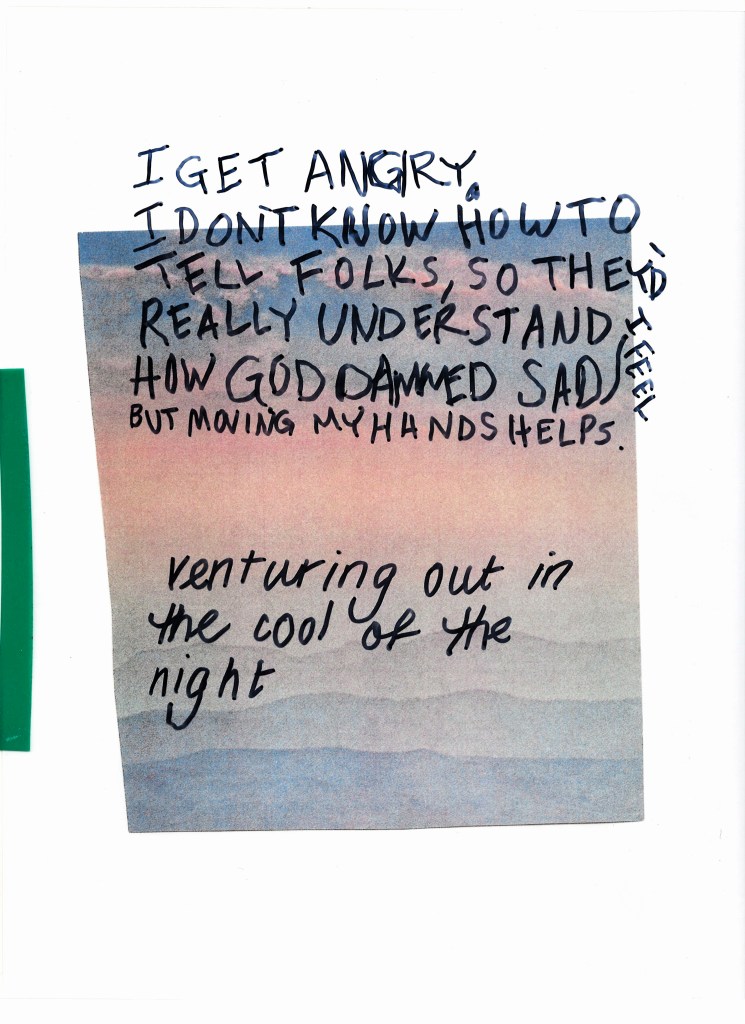 I GET ANGRY.
I DON'T KNOW HOW TO
TELL FOLKS, SO THEY'D
REALLY UNDERSTAND
HOW GOD DAMNED SAD I FEEL
BUT MOVING MY HANDS HELPS.
venturing out in
the cool of the
night